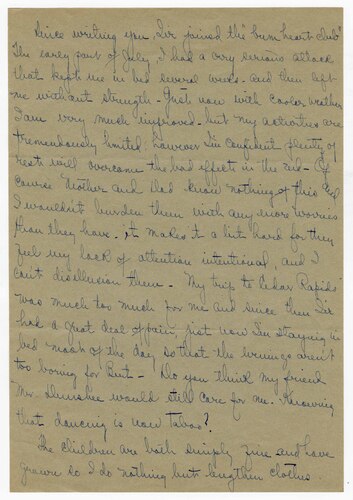 Since writing you, I've joined the "bum heart club"
The early part of July, I had a very serious attack
that kept me in bed several weeks. and then left
me without strength - Just now with cooler weather
I am very much improved - but my activities are
tremendously limited: however I'm confident plenty of
rest will overcome the bad effects in the end - Of
course Mother and Dad know nothing of this and
I wouldn't burden them with any more worries
than they have. it makes it a bit hard for they
feel my lack of attention intentional, and I
can't disillusion them - My trip to Cedar Rapids
was much too much for me and since then I've
had a great deal of pain, just now I'm staying in
bed most of the day so that the evenings aren't
too boring for Burt - Do you think my friend
Mr. would still care for me. Knowing
that dancing is now Taboo?
The children are both simply fine and have
grown so I do nothing but lengthen clothes.